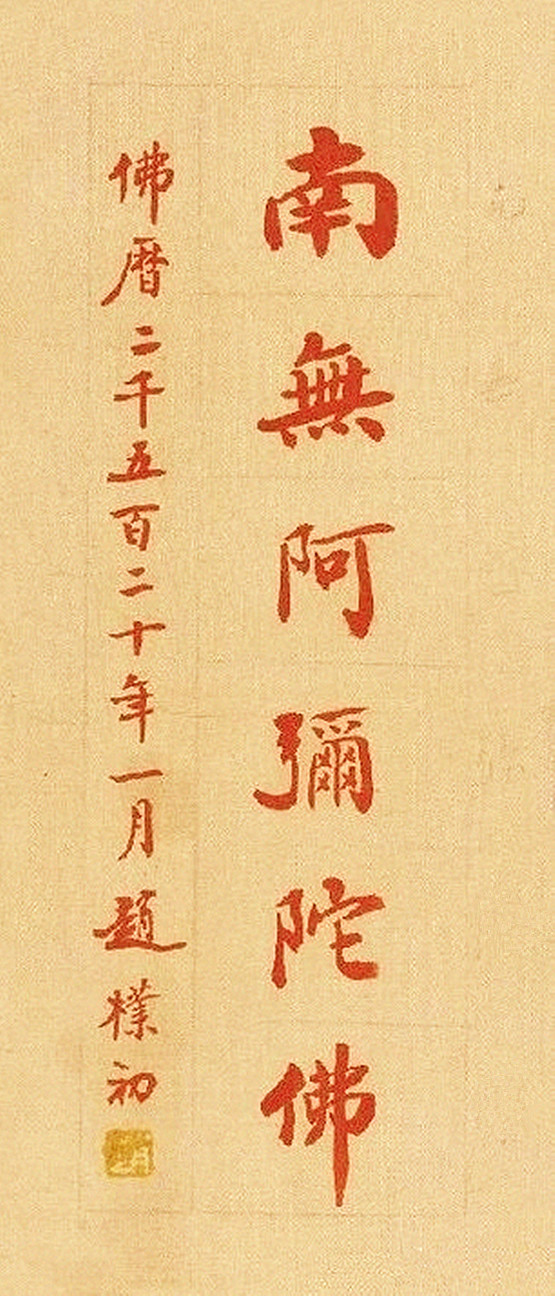 南無阿彌陀佛
佛曆二千五百二十年一月題樸初